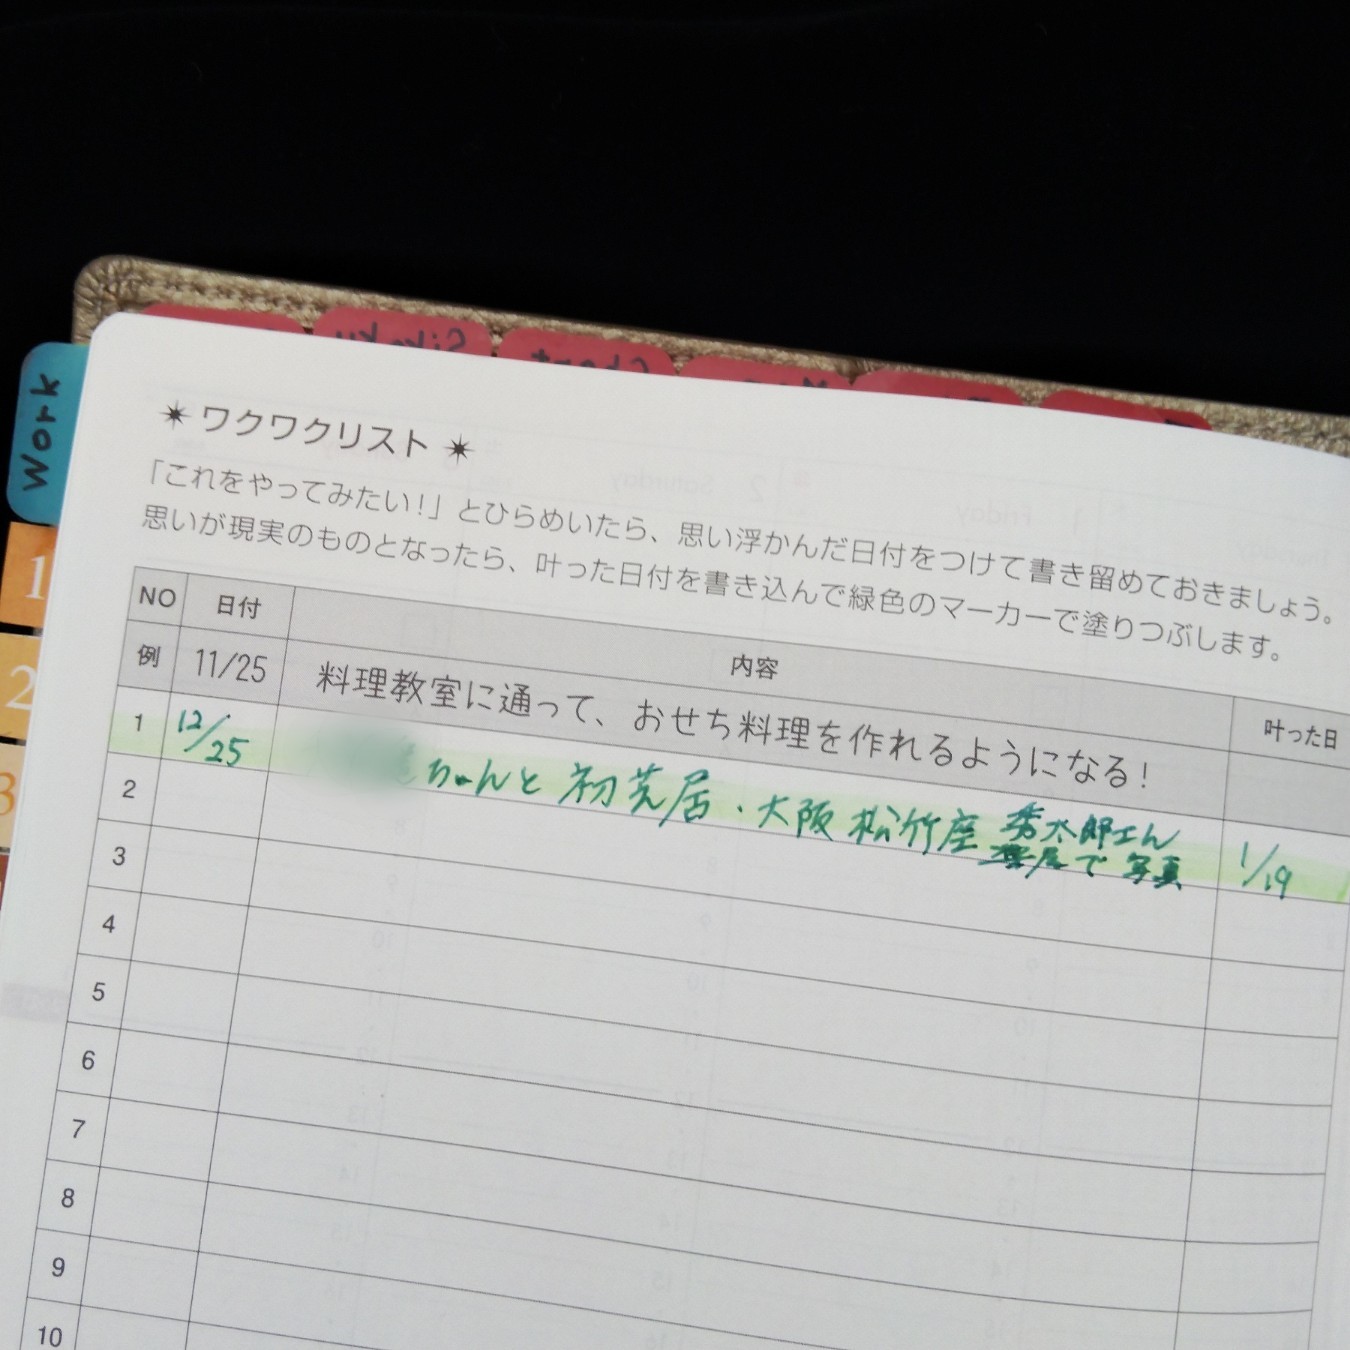 Work
1
2
3
✴ワクワクリスト✴
「これをやってみたい！」とひらめいたら、思い浮かんだ日付をつけて書き留めておきましょう。
思いが現実のものとなったら、叶った日付を書き込んで緑色のマーカーで塗りつぶします。
NO 日付 内容 叶った日
例 11/25 料理教室に通って、おせち料理を作れるようになる！
1 12/25 ちゃんと初芝居・大阪松竹座 秀太郎さん 1/19
楽屋で写真
2
3
4
5
6
7
8
9
10